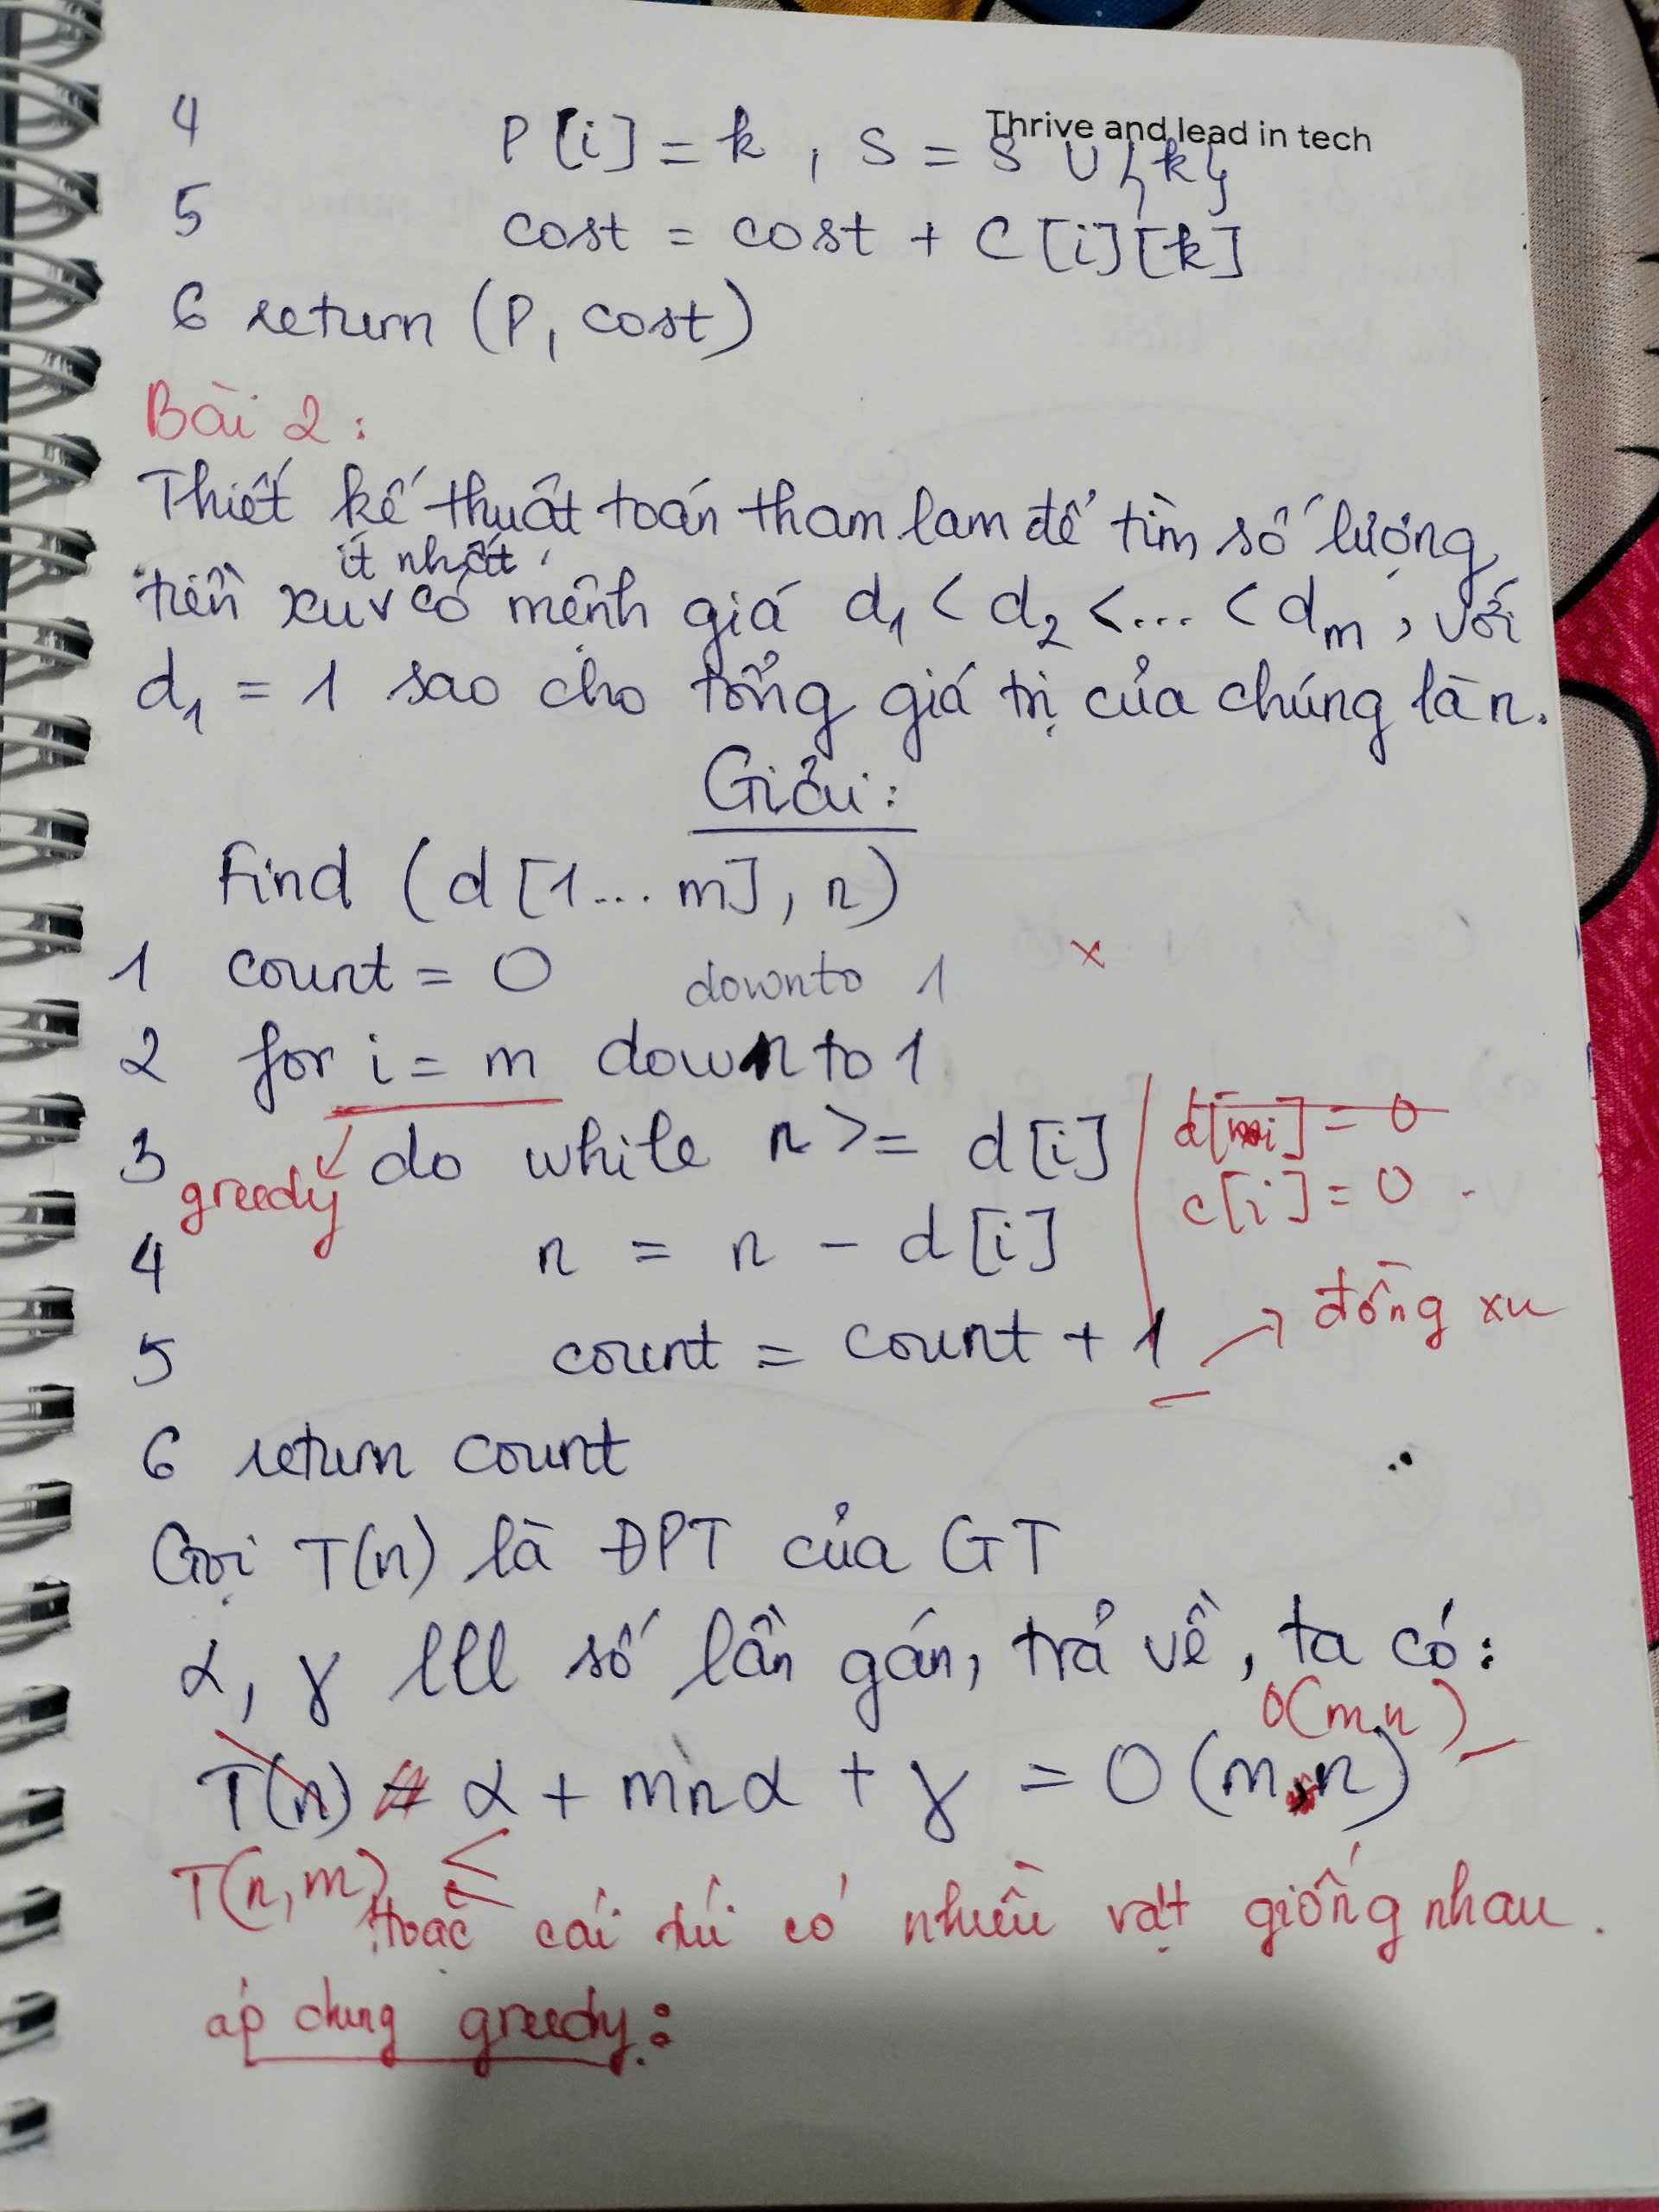 Thrive and lead in tech
4 P[i] = k, S = S ∪ {k}
5 cost = cost + C[i][k]
6 return (P, cost)
Bài 2:
Thiết kế thuật toán tham lam để tìm số lượng
ít nhất
tiền xu v có mệnh giá d₁ < d₂ < ... < dₘ, với
d₁ = 1 sao cho tổng giá trị của chúng là n.
Giải:
Find (d[1... m], n)
1 count = 0 downto 1 x
2 for i = m down to 1
3 do while n >= d[i]
d[i] = 0
greedy
c[i] = 0
4 n = n - d[i]
5 count = count + 1 → đồng xu
6 return count
Gọi T(n) là ĐPT của GT
α, γ lll số lần gán, trả về, ta có:
O(m.n)
T(n) = α + mnα + γ = O(m,n)
T(n,m) ≤
Hoặc cái túi có nhiều vật giống nhau.
áp dụng greedy: